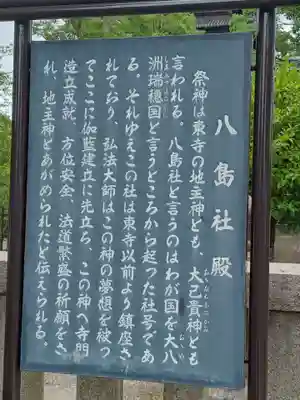 八島社殿
祭神は東寺の地主神とも、大己貴神とも
おおなむちのかみ
言われる。八島社と言うのはわが国を大八
おおや
洲瑞穂国と言うところから起った社号であ
る。それゆえこの社は東寺以前より鎮座さ
れており、弘法大師はこの神の夢想を被っ
てここに伽藍建立に先立ち、この神へ寺門
造立成就、方位安全、法道繁盛の祈願をさ
れ、地主神とあがめられたと伝えられる。